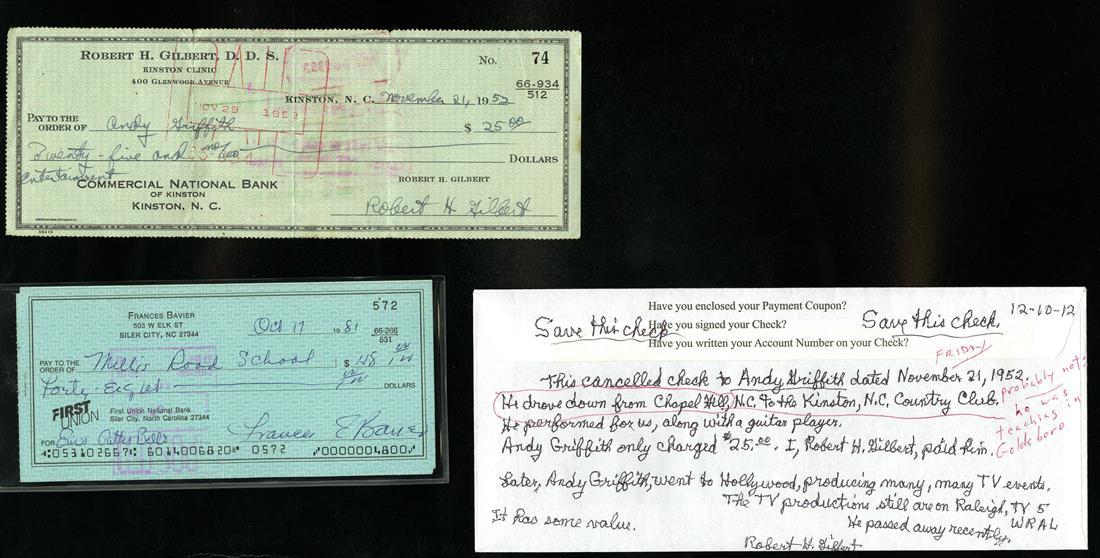 ROBERT H. GILBERT, D. D. S.
KINSTON CLINIC
400 GLENWOOD AVENUE
No. 74
66-934
512
KINSTON, N. C. November 21, 1952
PAID
NOV 29 1952
PAY TO THE
ORDER OF Andy Griffith $ 25 00
Twenty-five and no/100 DOLLARS
Entertainment
ROBERT H. GILBERT
COMMERCIAL NATIONAL BANK
OF KINSTON
KINSTON, N. C.
Robert H Gilbert
572
FRANCES BAVIER
503 W ELK ST
SILER CITY, NC 27344
Oct 17 1981
66-266
531
PAY TO THE
ORDER OF Millis Road School $ 48
Forty Eight DOLLARS
FIRST
UNION
First Union National Bank
Siler City, North Carolina 27344
FOR Bells
Frances E Bavier
0572
Have you enclosed your Payment Coupon?
12-10-12
Save this check
Have you signed your Check?
Save this check.
Have you written your Account Number on your Check?
FRIDAY
This cancelled check to Andy Griffith dated November 21, 1952.
He drove down from Chapel Hill, N.C. to the Kinston, N.C. Country Club.
probably not:
he was
teaching in
Goldsboro
He performed for us, along with a guitar player.
Andy Griffith only charged $25.00. I, Robert H. Gilbert, paid him.
Later, Andy Griffith, went to Hollywood, producing many, many TV events.
The TV productions still are on Raleigh, TV 5
WRAL
It has some value.
He passed away recently.
Robert H. Gilbert